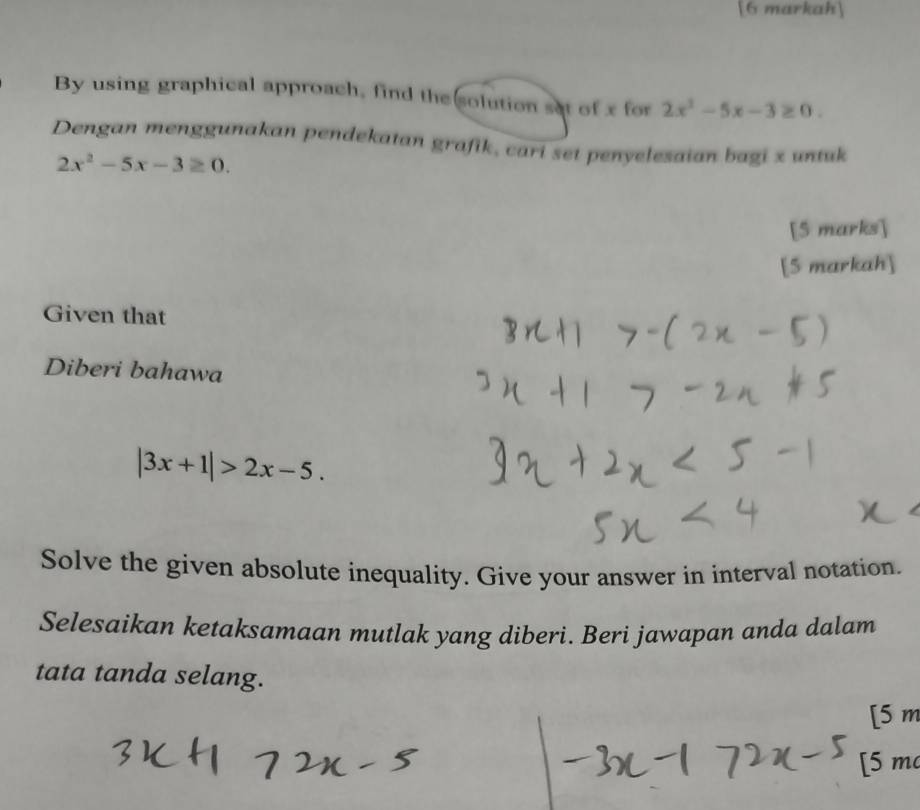 [6 markah]
By using graphical approach, find the solution set of x for 2x² – 5x – 3 ≥ 0.
Dengan menggunakan pendekatan grafik, cari set penyelesaian bagi x untuk
2x² – 5x – 3 ≥ 0.
[5 marks]
[5 markah]
Given that
3x+1 > -(2x - 5)
Diberi bahawa
3x + 1 > -2x + 5
|3x+1| > 2x – 5.
3x + 2x < 5 - 1
5x < 4 x <
Solve the given absolute inequality. Give your answer in interval notation.
Selesaikan ketaksamaan mutlak yang diberi. Beri jawapan anda dalam
tata tanda selang.
[5 m
3x+1 > 2x - 5 | -3x - 1 > 2x - 5 [5 ma